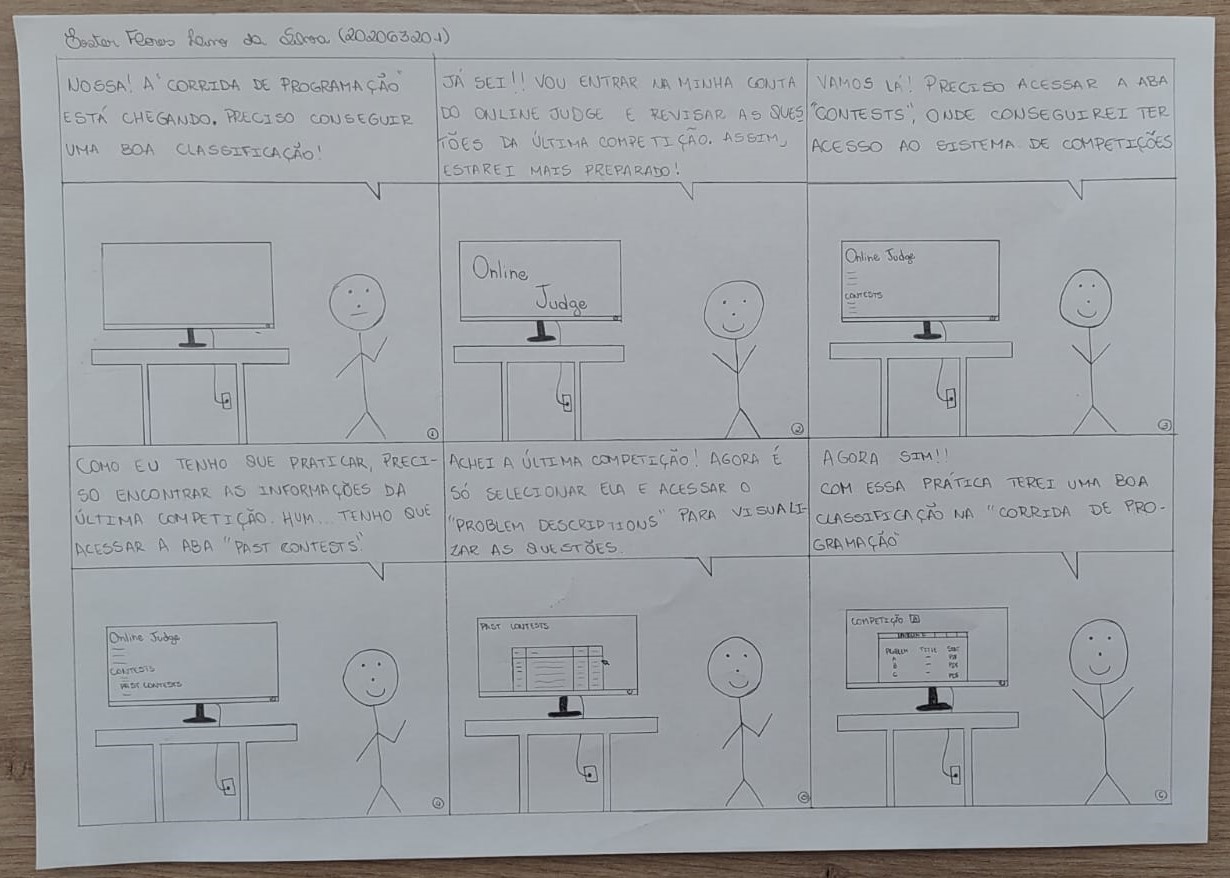 Flores da Silva (202063201)
NOSSA! A "CORRIDA DE PROGRAMAÇÃO"
ESTÁ CHEGANDO. PRECISO CONSEGUIR
UMA BOA CLASSIFICAÇÃO!
JÁ SEI!! VOU ENTRAR NA MINHA CONTA
DO ONLINE JUDGE E REVISAR AS QUES
TÕES DA ÚLTIMA COMPETIÇÃO. ASSIM,
ESTAREI MAIS PREPARADO!
VAMOS LÁ! PRECISO ACESSAR A ABA
"CONTESTS", ONDE CONSEGUIREI TER
ACESSO AO SISTEMA DE COMPETIÇÕES
1
Online
Judge
2
Online Judge
CONTESTS
3
COMO EU TENHO QUE PRATICAR, PRECI-
SO ENCONTRAR AS INFORMAÇÕES DA
ÚLTIMA COMPETIÇÃO. HUM... TENHO QUE
ACESSAR A ABA "PAST CONTESTS".
ACHEI A ÚLTIMA COMPETIÇÃO! AGORA É
SÓ SELECIONAR ELA E ACESSAR O
"PROBLEM DESCRIPTIONS" PARA VISUALI-
ZAR AS QUESTÕES.
AGORA SIM!!
COM ESSA PRÁTICA TEREI UMA BOA
CLASSIFICAÇÃO NA "CORRIDA DE PRO-
GRAMAÇÃO"
Online Judge
CONTESTS
PAST CONTESTS
4
PAST CONTESTS
5
COMPETIÇÃO
PROBLEM TITLE
A PDF
B PDF
C PDF
6